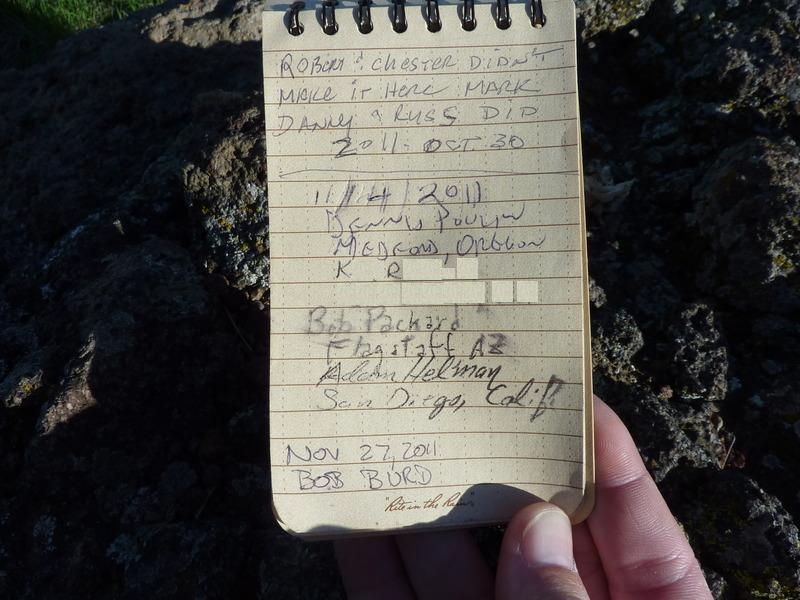 ROBERT & CHESTER DIDN'T
MAKE IT HERE MARK
DANNY & RUSS DID
2011- OCT 30
11/14/2011
DENNIS POULIN
MEDFORD, OREGON
K R
Bob Packard
Flagstaff AZ
Adam Helman
San Diego, Calif
NOV 27, 2011
BOB BURD
"Rite in the Rain"